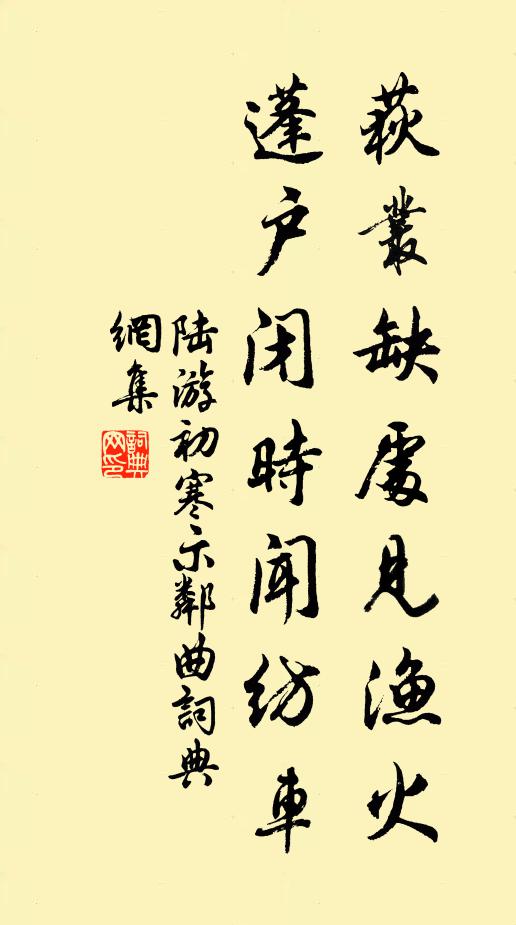 荻叢缺處見漁火
蓬户闭時聞紡車
陆游初寒示鄰曲詞典
網集
詞典
网印